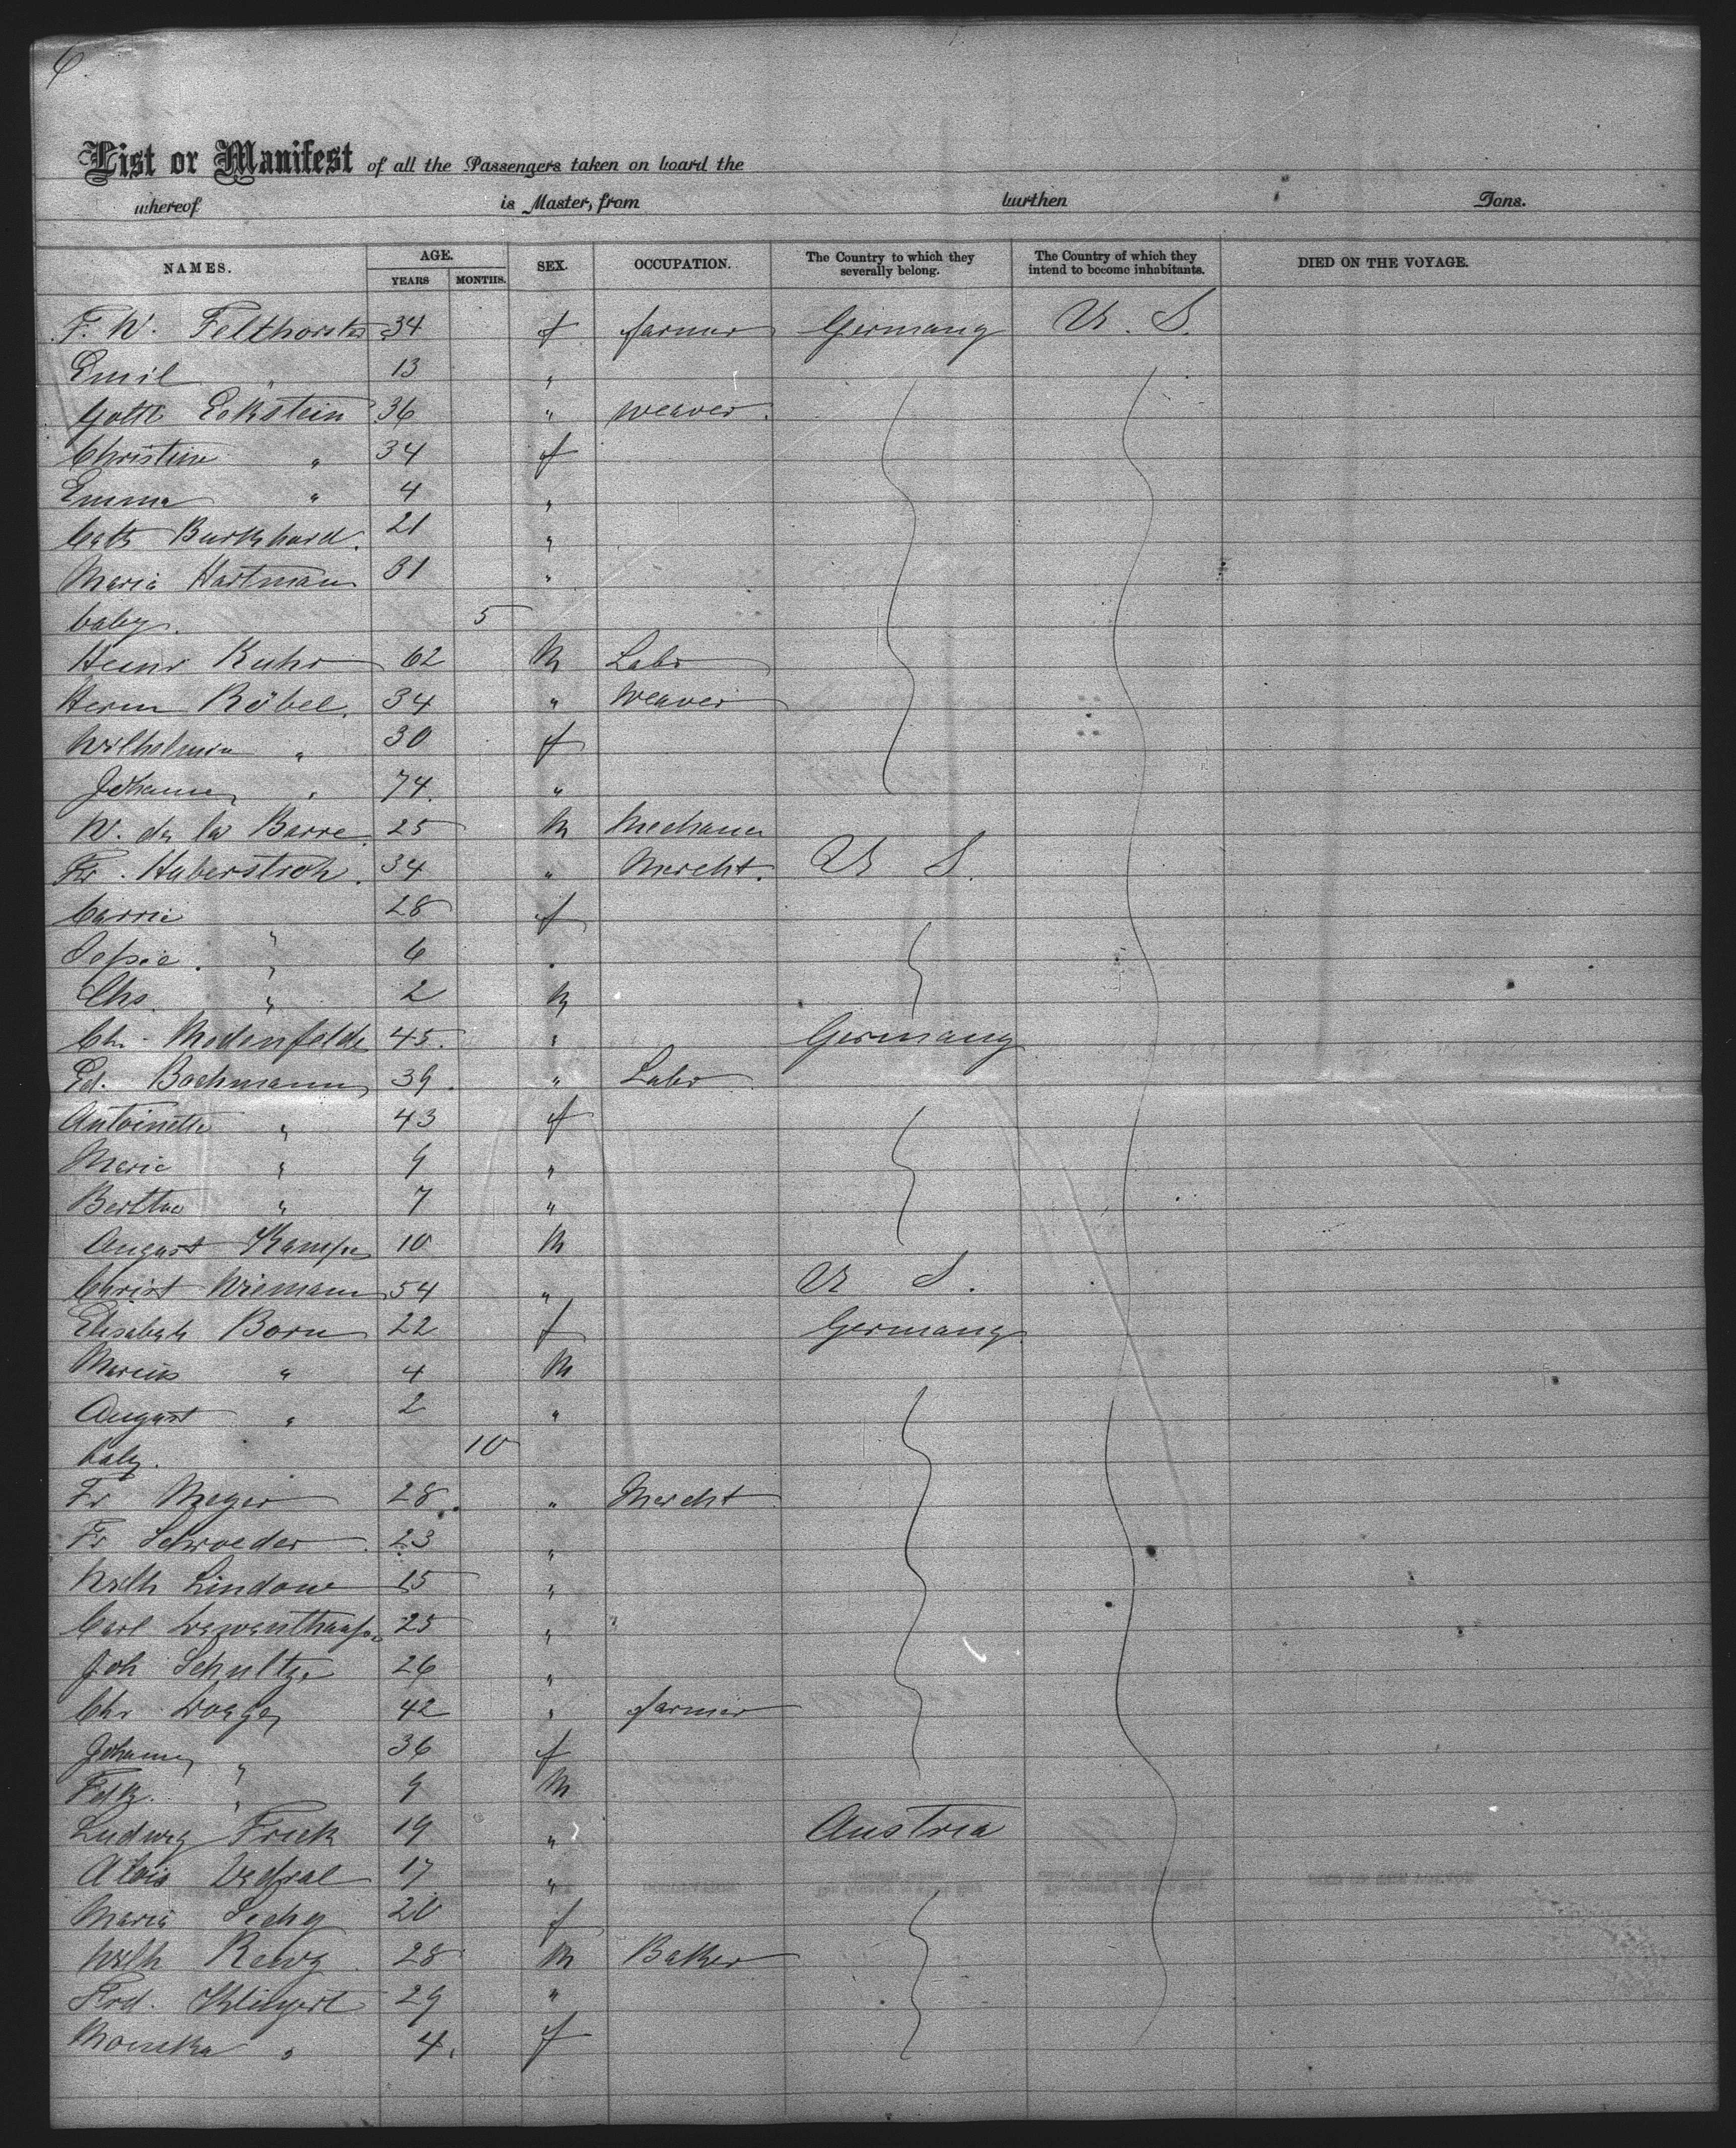 6.
List or Manifest of all the Passengers taken on board the
whereof is Master, from burthen Tons.
NAMES. AGE. YEARS MONTHS. SEX. OCCUPATION. The Country to which they severally belong. The Country of which they intend to become inhabitants. DIED ON THE VOYAGE.
F. W. 34 f farmer Germany U. S.
Emil " 13 "
Gottl. Eckstein 36 " weaver
Christine " 34 f
Emma " 4 "
Cath Burkhard. 21 "
Maria Hartmann 31 "
baby. 5
Heinr Kuhr 62 M Labr
Herm Röbel. 34 " Weaver
Wilhelmin " 30 f
Johanne " 74. "
W. de la Barre. 25 M Mechanic
Fr. Haberstroh. 34 " Mercht. U S.
Carrie " 28 f
" 6 "
Chs. " 2 M
Ch. 45. " Germany
Ed. Bachmann 39. " Labr
Antoinette " 43 f
Marie " 9 "
Bertha " 7 "
August 10 M
Christ Wiemann 54 " U S.
Elisabeth Born 22 f Germany
Marcus " 4 M
August " 2 "
baby. 10
Fr Meyer 28. " Mercht
Fr Schroeder. 23 "
Wilh Lindow 15 "
Carl 25 " "
Joh Schultze 26 "
Chr 42 " farmer
Johanne " 36 f
" 9 M
Ludwig Frick 19 " Austria
Alois 17 "
Maria 20 f
Wilh 28 M Baker
Ferd. 29 "
" 4. f